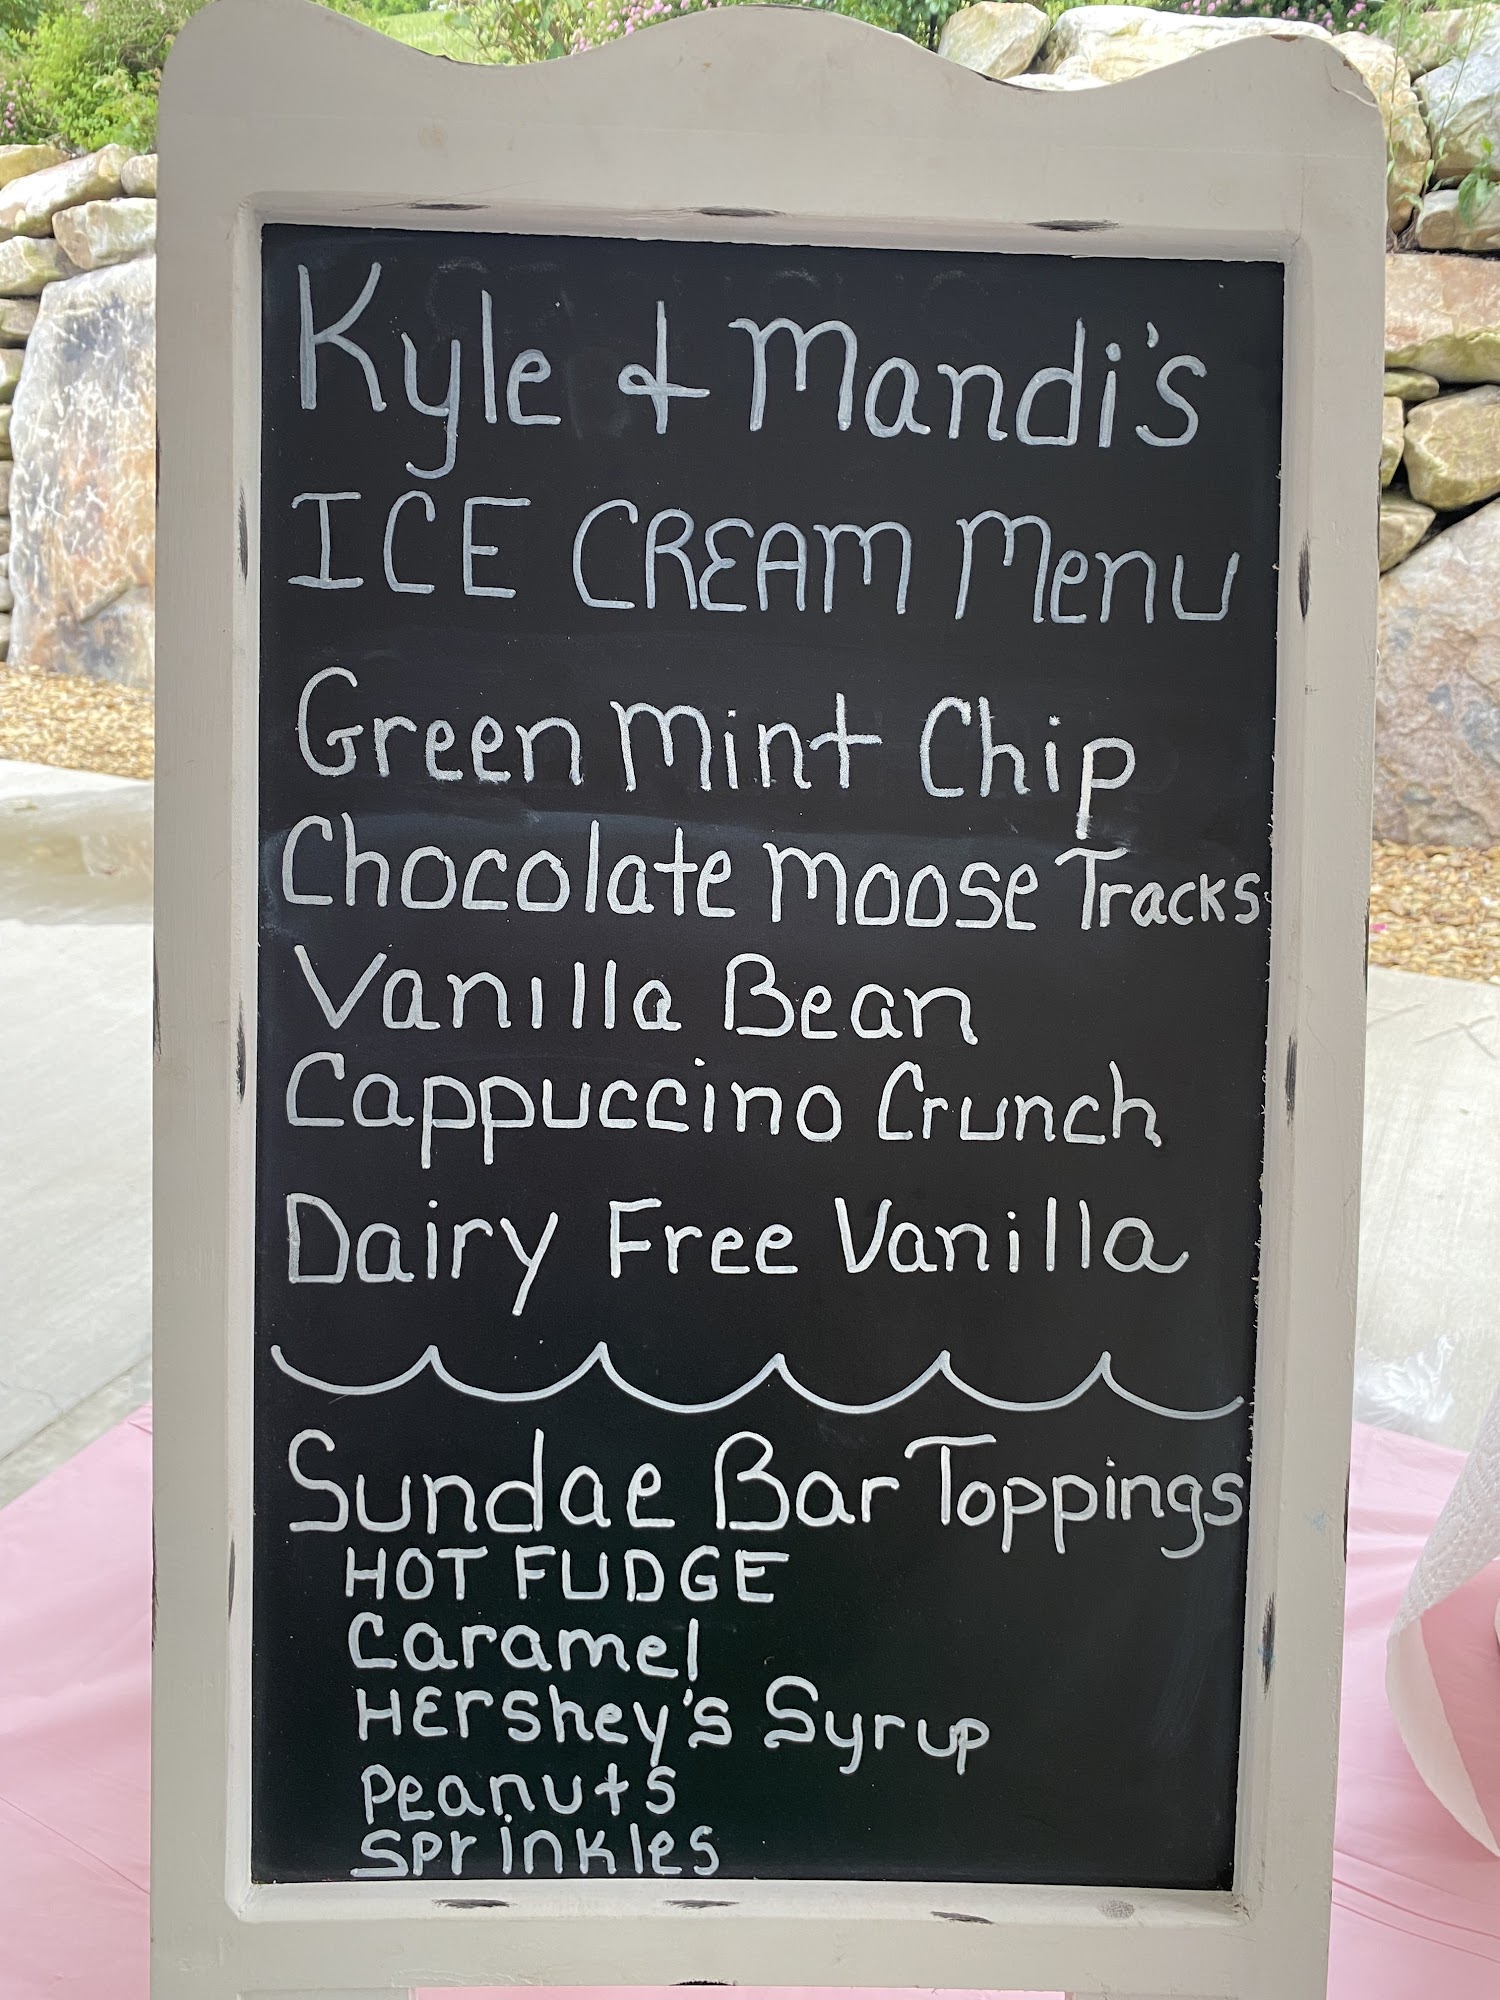 Kyle & Mandi's
ICE CREAM Menu
Green Mint Chip
Chocolate Moose Tracks
Vanilla Bean
Cappuccino Crunch
Dairy Free Vanilla
Sundae Bar Toppings
HOT FUDGE
Caramel
Hershey's Syrup
Peanuts
Sprinkles